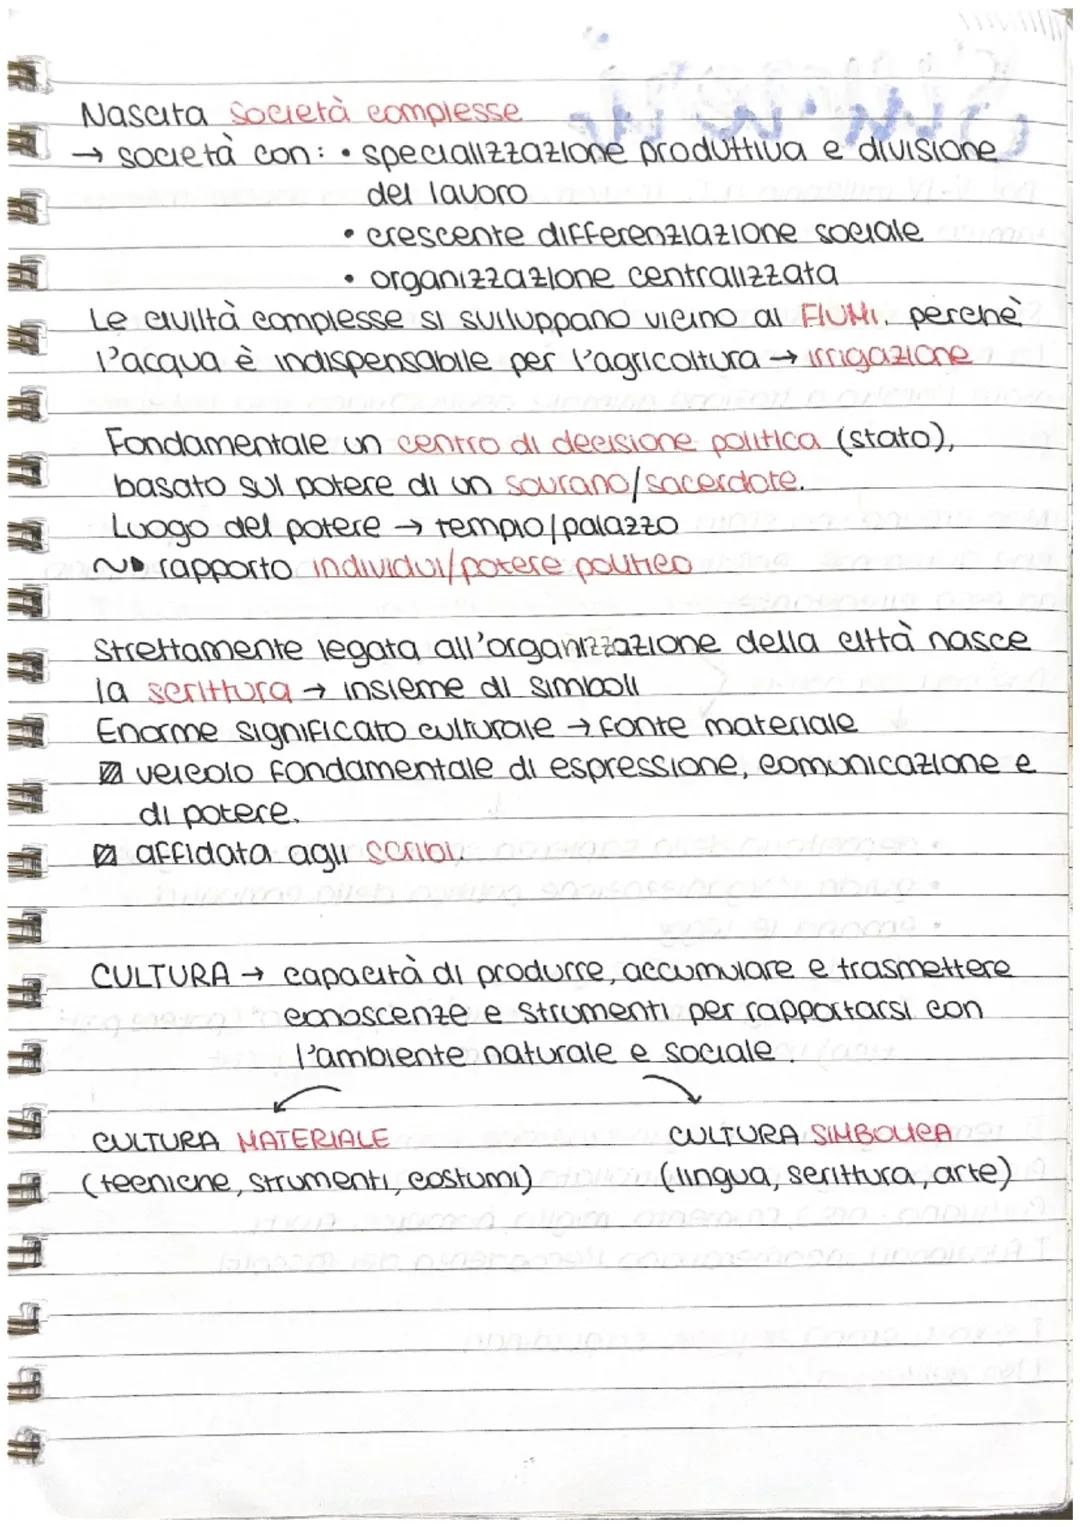 Nascita società complesse
→ società con: • specializzazione produttiva e divisione
del lavoro
• crescente differenziazione sociale
• organizzazione centralizzata
Le civiltà complesse si sviluppano vicino ai FIUMI. perchè
l'acqua è indispensabile per l'agricoltura → irrigazione
Fondamentale un centro di decisione politica (stato),
basato sul potere di un sovrano/sacerdote.
Luogo del potere → tempio/palazzo
rapporto individui/potere politico
Strettamente legata all'organizzazione della città nasce
la scrittura → insieme di simboli
Enorme significato culturale → fonte materiale
veicolo fondamentale di espressione, comunicazione e
di potere.
affidata agli scribi.
CULTURA → capacità di produrre, accumulare e trasmettere
conoscenze e strumenti per rapportarsi con
l'ambiente naturale e sociale.
CULTURA MATERIALE CULTURA SIMBOLICA
(tecniche, strumenti, costumi) (lingua, scrittura, arte)